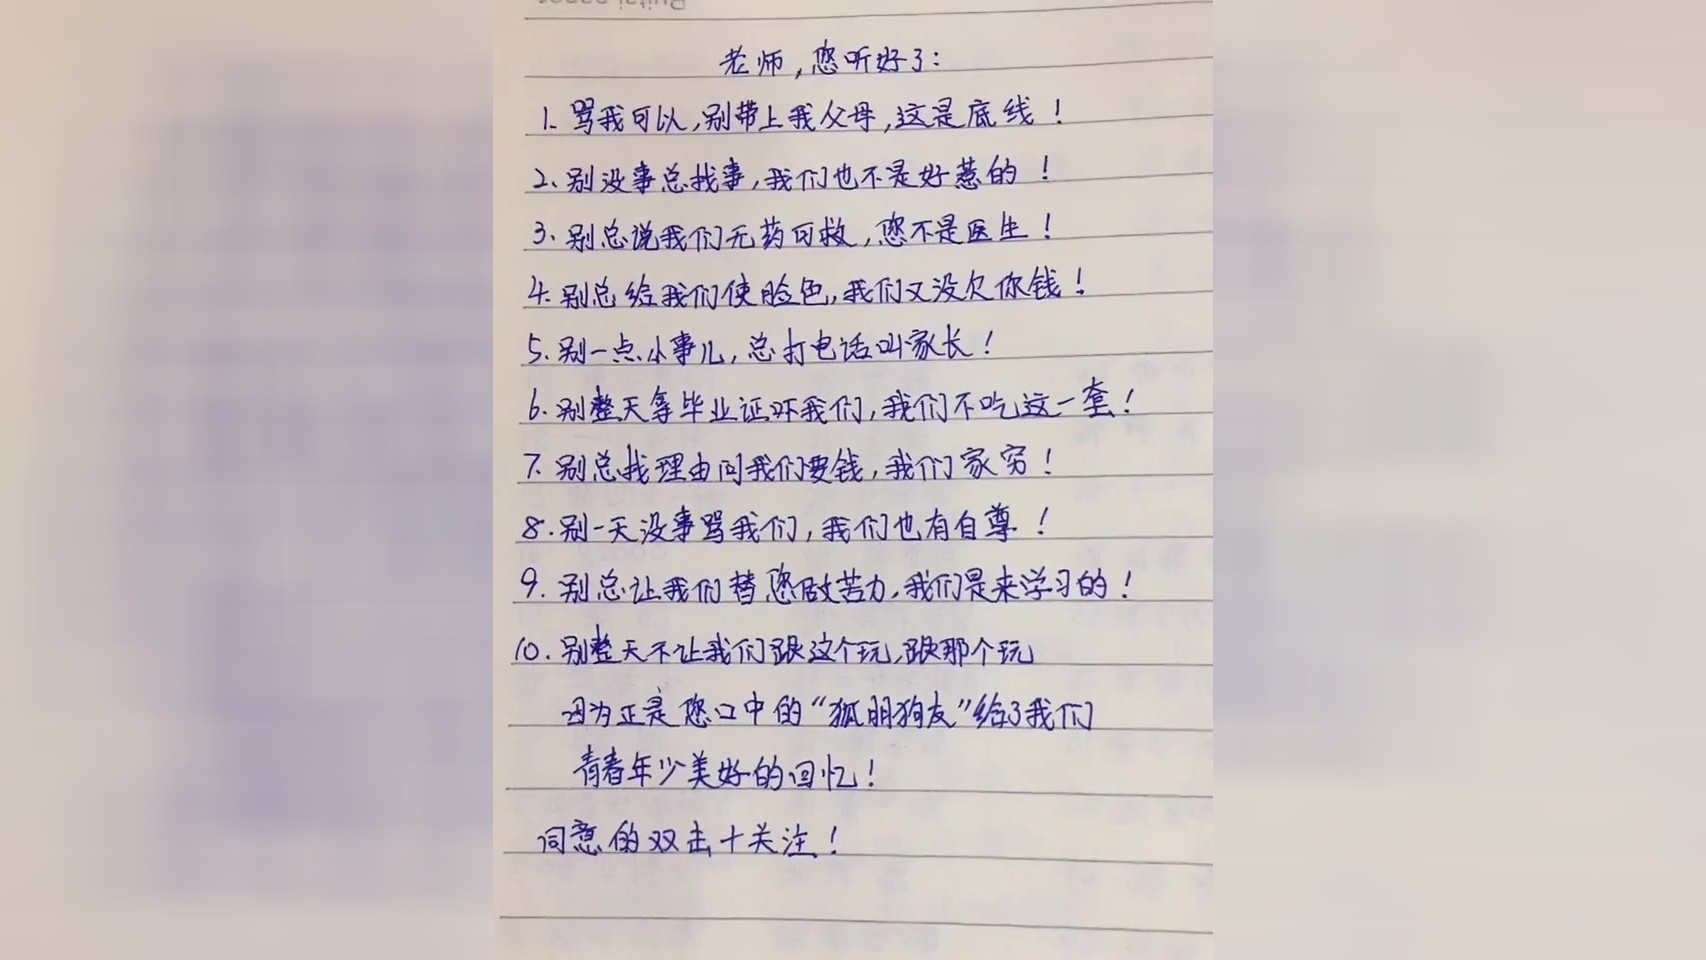 老师，您听好了：
1. 骂我可以，别带上我父母，这是底线！
2. 别没事总找事，我们也不是好惹的！
3. 别总说我们无药可救，您不是医生！
4. 别总给我们使脸色，我们又没欠你钱！
5. 别一点小事儿，总打电话叫家长！
6. 别整天拿毕业证吓我们，我们不吃这一套！
7. 别总找理由问我们要钱，我们家穷！
8. 别一天没事骂我们，我们也有自尊！
9. 别总让我们替您做苦力，我们是来学习的！
10. 别整天不让我们跟这个玩，跟那个玩
因为正是您口中的“狐朋狗友”给了我们
青春年少美好的回忆！
同意的双击+关注！